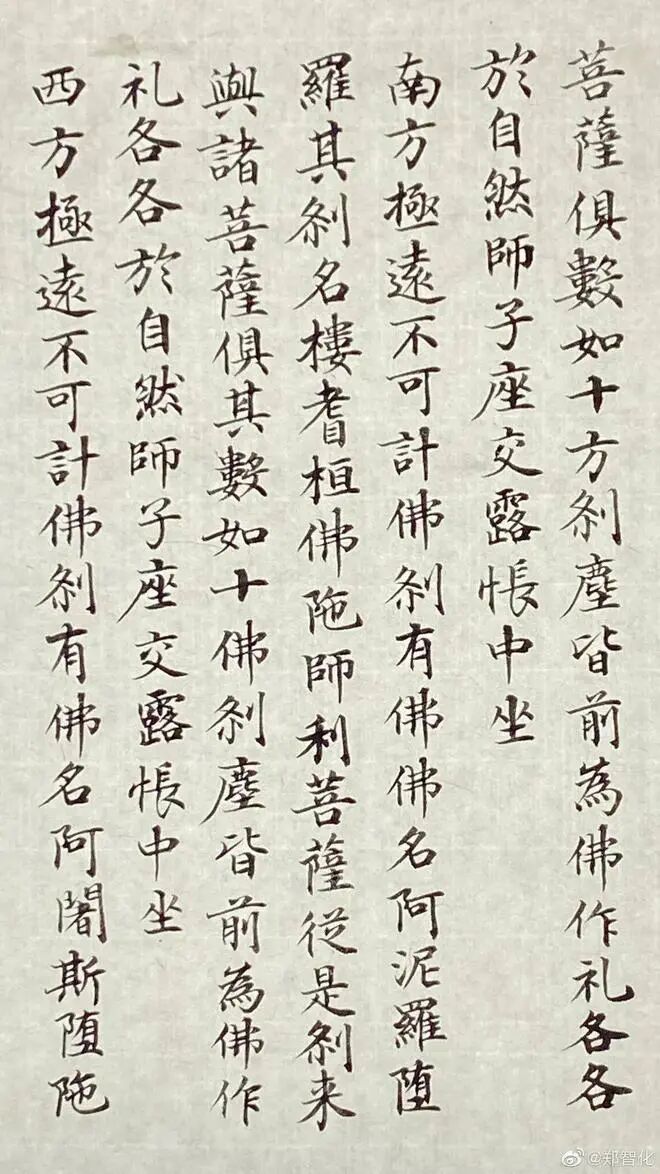 菩薩俱數如十方刹塵皆前為佛作礼各各
於自然師子座交露帳中坐
南方極遠不可計佛刹有佛佛名阿泥羅墮
羅其刹名樓耆桓佛陁師利菩薩從是刹来
與諸菩薩俱其數如十佛刹塵皆前為佛作
礼各各於自然師子座交露帳中坐
西方極遠不可計佛刹有佛名阿闍斯墮陁
@郑智化